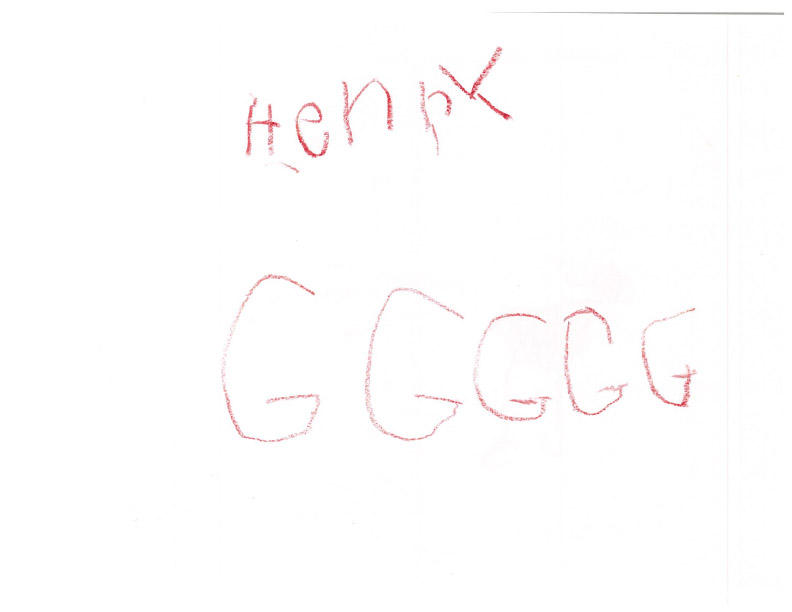 Henry
G G G G G